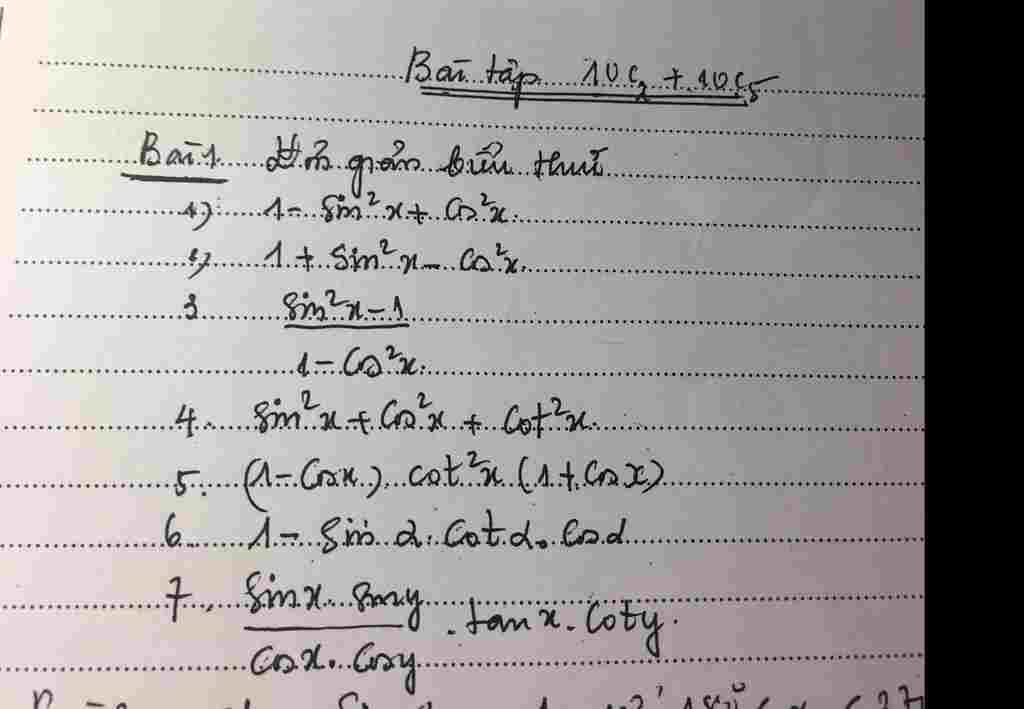 Bài tập 10C2 + 10C5
Bài 1. Đơn giản biểu thức
1) 1 - sin²x + cos²x.
2) 1 + sin²x - cos²x.
3 sin²x - 1
1 - cos²x.
4. sin²x + cos²x + cot²x.
5. (1 - cosx). cot²x (1 + cosx)
6. 1 - sin α. cot α. cos α
7. sinx. siny
. tan x. coty.
cosx. cosy